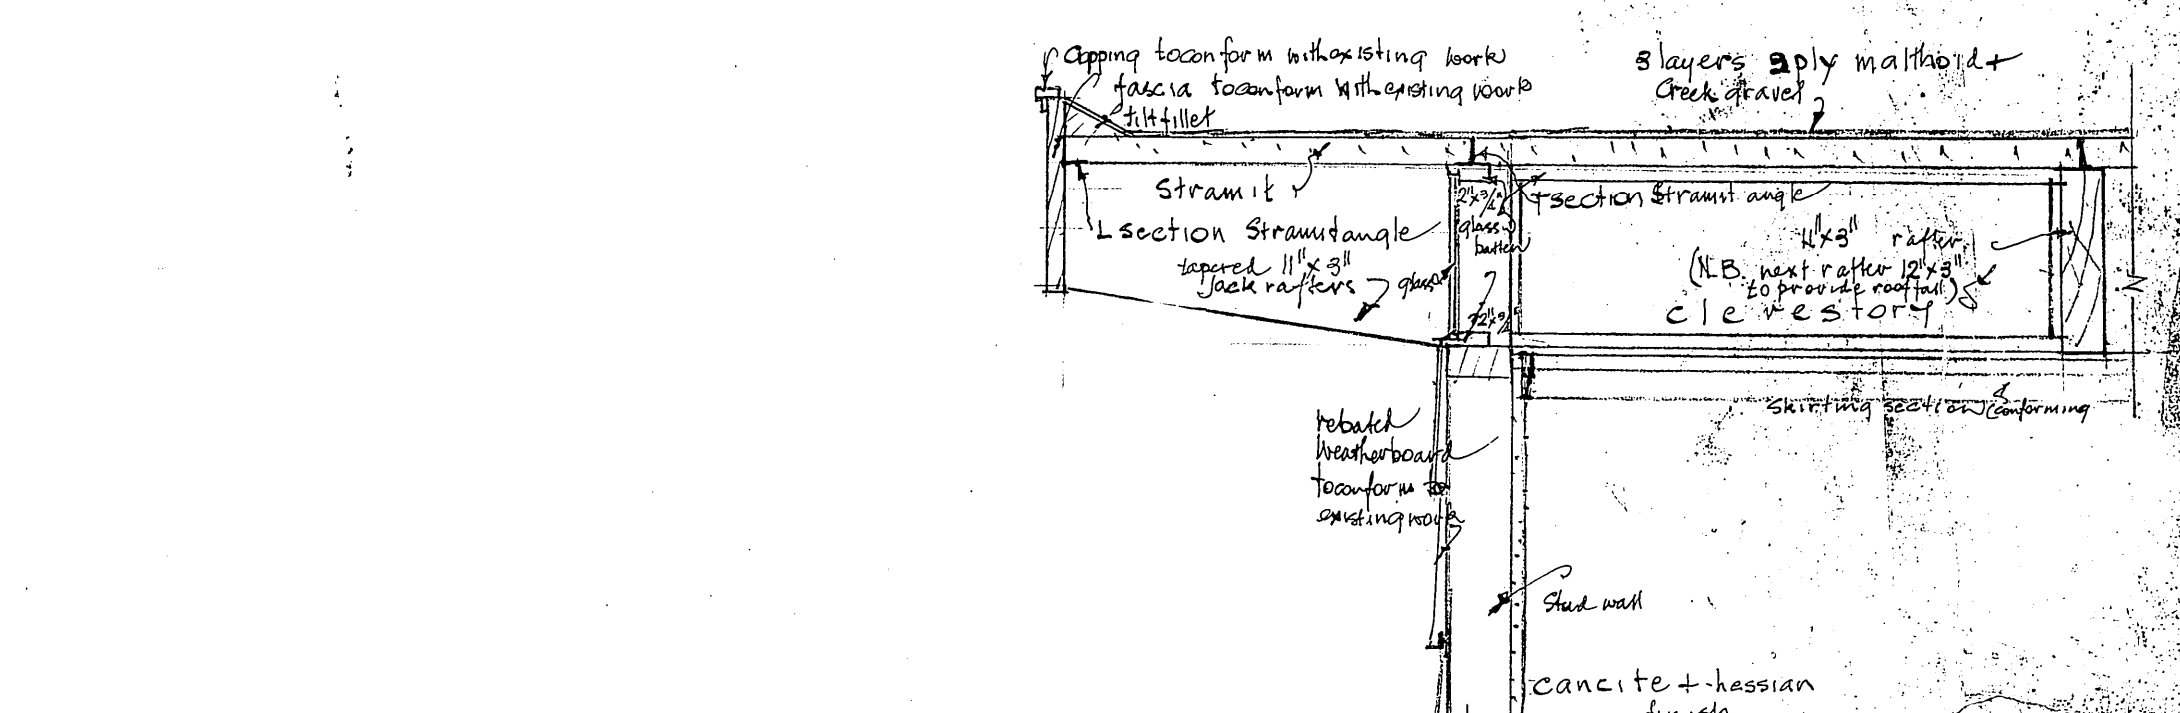 Capping to conform with existing work
fascia to conform with existing work
tilt fillet
3 layers 2ply malthoid +
Creek gravel
Stramit
L section Stramit angle
tapered 11"x3"
Jack rafters
glass
2"x3/4"
glass
batten
T section Stramit angle
11"x3" rafter
(N.B. next rafter 12"x3"
to provide roof fall)
clerestory
Skirting section conforming
rebated
Weatherboard
to conform to
existing work
Stud wall
cancite + hessian